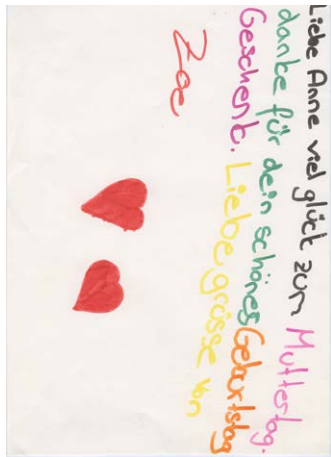 Liebe Anne viel glück zum Muttertag.
danke für dein schönes Geburtstag
Geschenk. Liebe grüsse von
Zoe